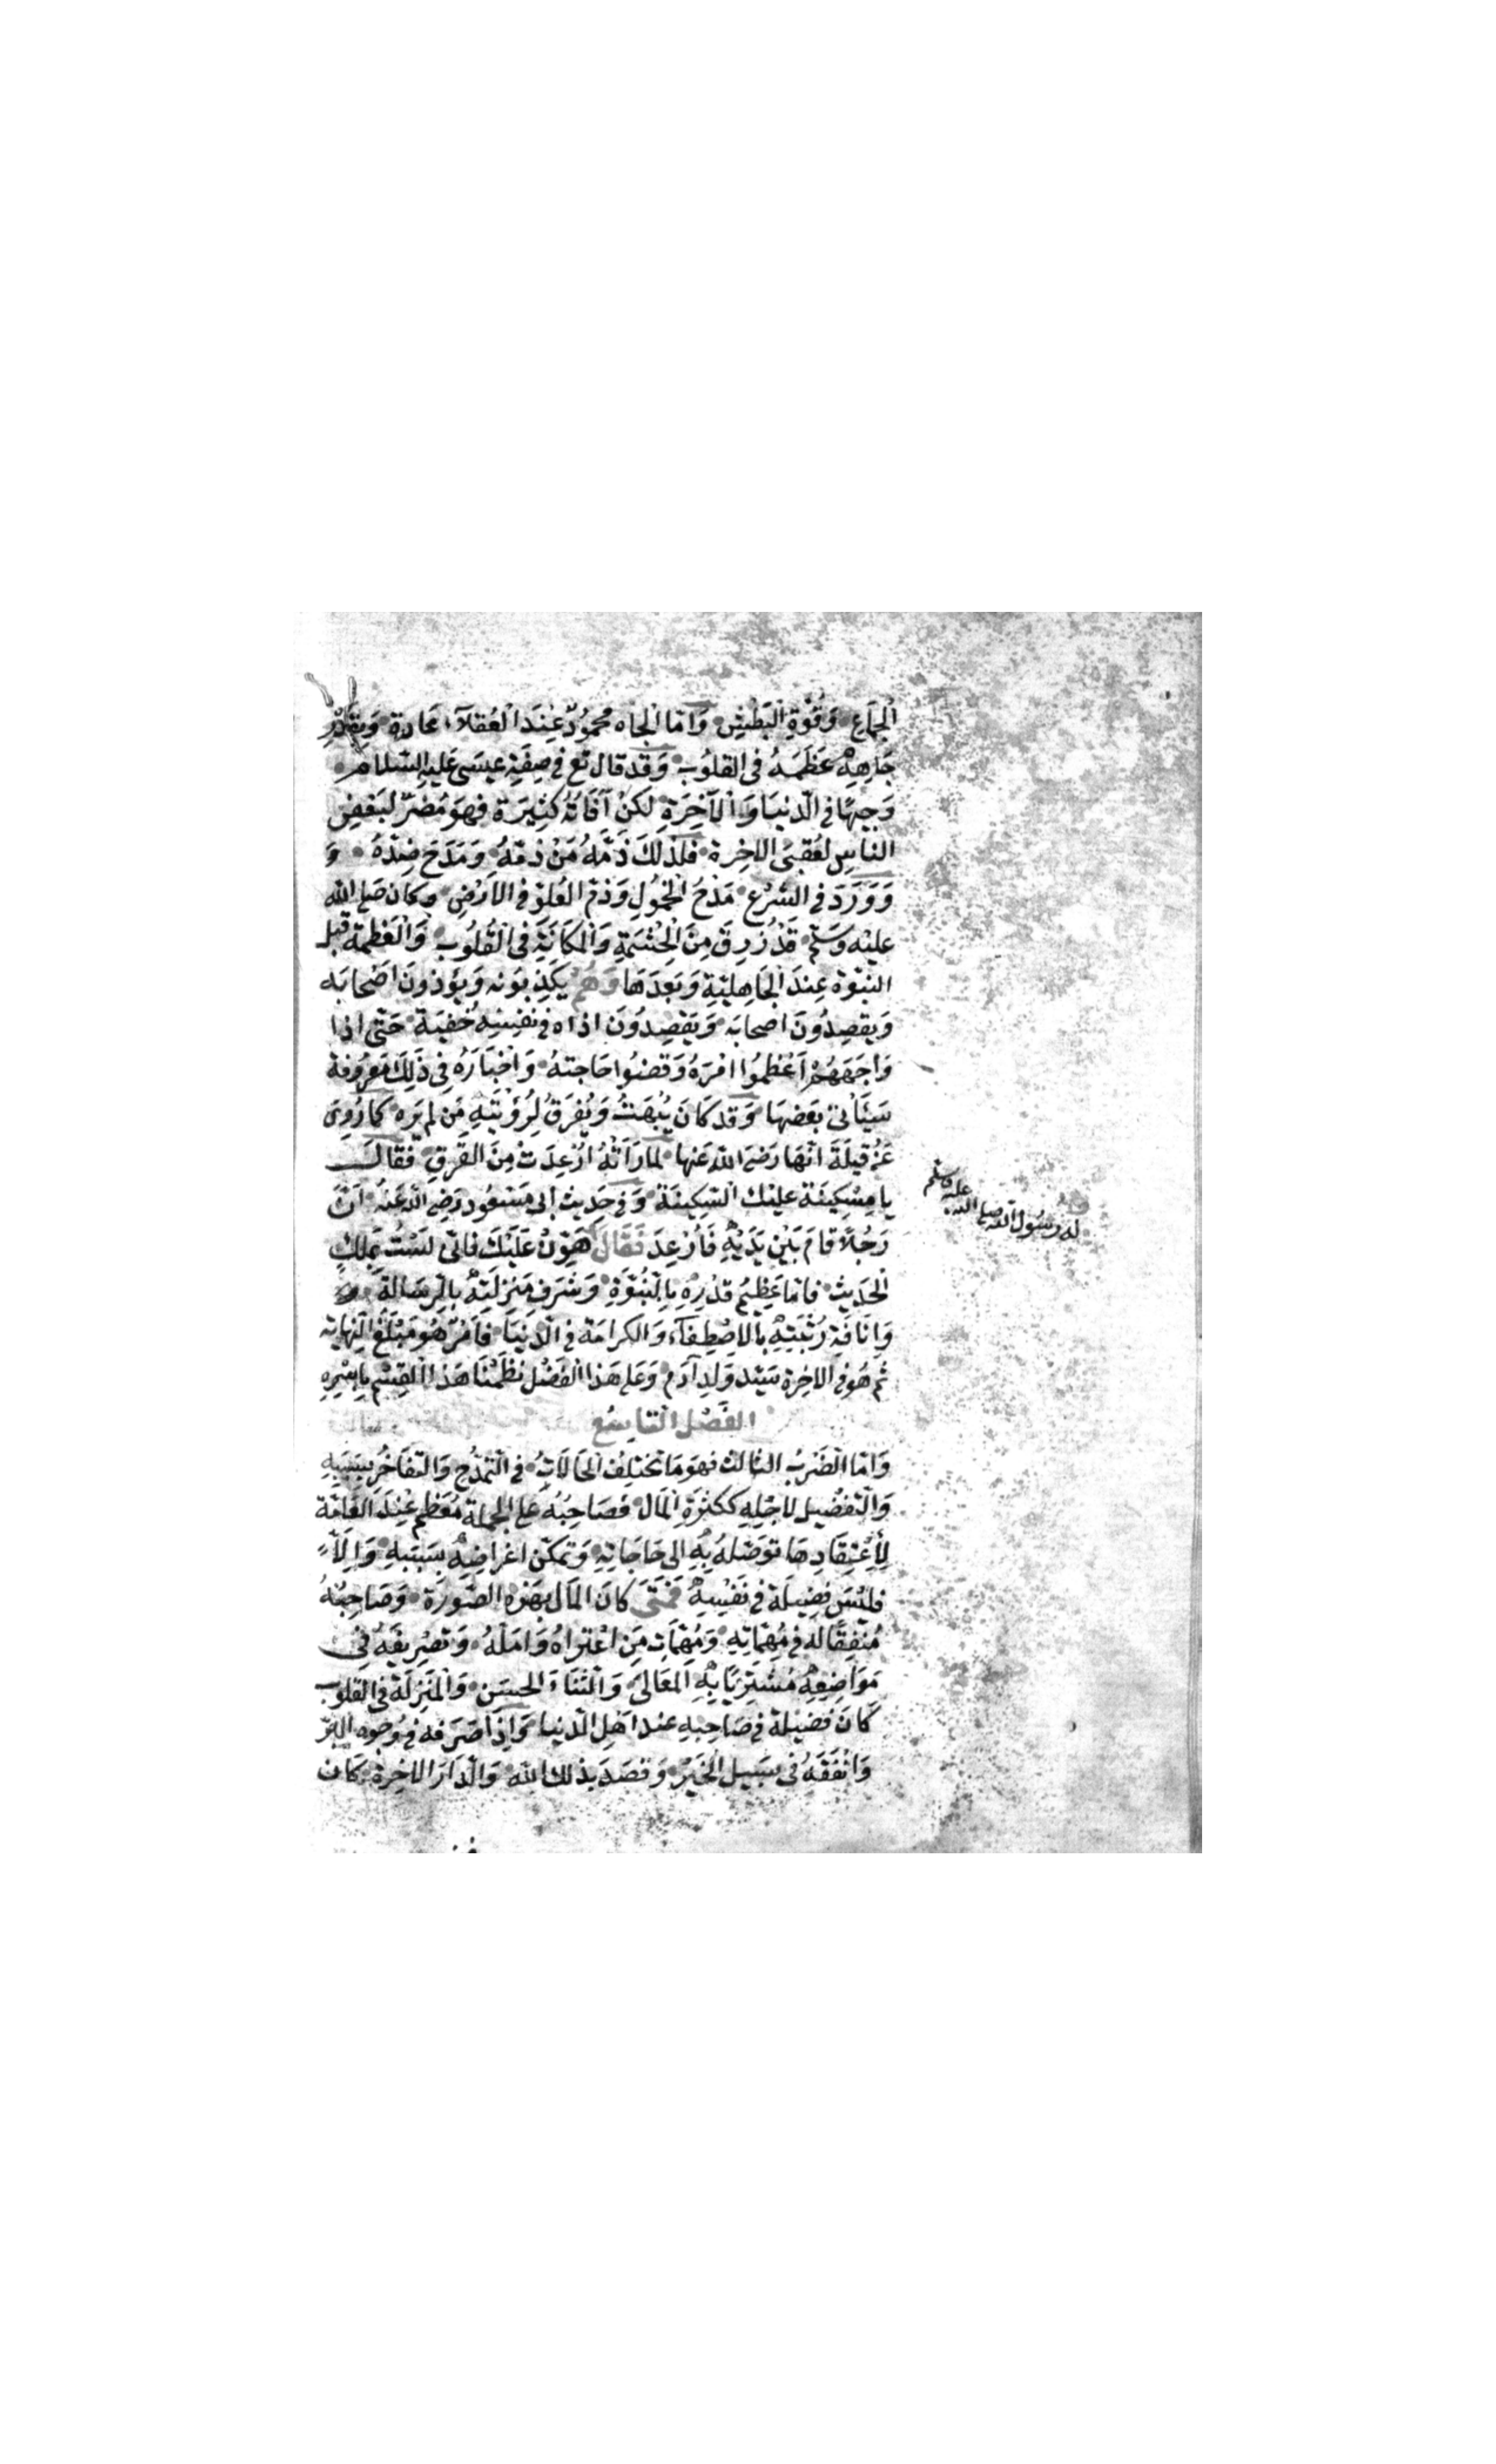 الْجِمَاعِ وَقُوَّةِ الْبَطْشِ وَامّا الْجاه محمُودٌ عِنَدَ الْعُقلآءِ عَادة وَبِقَدْرِ
جَاهِهِ عَظَمَهُ فى القلوُبِ وَقد قال تع فى صِفَةِ عيسَى عَليهِ السّلام
وَجِيهًا فى الدّنيَا وَالآخِرَةِ لكنْ آفَاتهُ كثِيرَة فهوَ مُضرّ لبَعْضِ
الناسِ لعُقبَى الاخِرة فلذلكَ ذَمَّهُ مَنْ ذمّهُ وَمَدَحَ ضِدّهُ وَ
وَوَرَدَ فى الشرْعِ مَدْحُ الْخُمُولِ وَذمّ العُلوّ فى الارْضِ وكان صَلى الله
عليْه وَسَلم قَدْ رُزِقَ مِنَ الْحِشمَةِ وَالْمَكَانَةِ فى الْقُلُوبِ وَالْعَظمة قبل
النبوّة عِندَ الْجَاهِليّةِ وَبَعدَهَا وَهُمْ يكَذِبوَنه وَيؤذونَ اَصْحابَه
وَيقصِدُونَ اصحابَه وَيَقْصِدُونَ اذاه فى نفسِهِ خُفيَة حَتّى اذا
وَاجَهَهُمْ اَعْظمُوا امْرَهُ وَقضَوْا حَاجتهُ وَاَخْبَارَهُ فِى ذَلِكَ مَعرُوفة
سَيَأتى بَعضهَا وَقد كَانَ يُبْهَتُ وَيُفرَقُ لِرُؤيَتِهِ مَن لم يَره كما رُوِىَ
عَنْ قيلَةَ انّهَا رَضىَ الله عَنها لما رَاَتْهُ اُرْعِدَتْ مِنَ الفَرَقِ فقالَ
يا مِسْكِينَة عليْك السّكِينَة وَفى حَدِيث ابى مَسْعُود رَضِىَ الله عَنْهُ اَنّ
رَجُلاً قامَ بَيْن يَدَيْهِ فَاُرْعِدَ فَقَالَ هَوّنْ عَلَيْكَ فانّى لسْتُ بمَلِكٍ
الْحَديث فامّا عَظِيمُ قدْرِهِ بالنّبُوّةِ وَشرَف مَنزلَتِهِ بالرّسَالة
وَاِنَافَة رُتْبَتِهِ بالاِصْطِفآءِ وَالكرامَة فى الدّنيَا فَاَمْرٌ هُوَ مَبْلَغُ النّهاية
ثم هُوَ فى الاخِرة سَيّد وَلدِ آدَم وَعَلى هَذا الْفَصْل نظمْنَا هَذا القِسْم بِاَسْرِهِ
الفَصْل التاسِعُ
وَامّا الضّرْبُ الثالث فهوَ مَا تختلِفُ الْحَالَاتُ فى التّمَدّحِ وَالتّفاخُر بسَبَبِهِ
وَالتّفضِيل لاجْلِهِ ككثرَةِ الْمَال فصَاحِبُهُ عَلى الجملة مُعَظم عِندَ العَامّة
لاِعْتِقَادِهَا تَوَصّلهُ بِهِ الى حَاجَاتِهِ وَتمَكّن اغراضِهِ بِسَبَبهِ وَاِلّا
فليْسَ فَضِيلَة فى نَفْسِهِ فَمتَى كانَ المَال بهَذِهِ الصّورَة وَصَاحِبُهُ
مُنْفِقًا لَهُ فى مُهِمّاتِهِ وَمُهِمّاتِ مَن اعْتَراهُ وَامَلَهُ وَتصْرِيفَهُ فِى
مَوَاضِعِهِ مُشْتِرِيًا بِهِ المَعَالىَ وَالثّنَاءَ الحسَن وَالْمَنزِلَة فى القلوب
كَانَ فَضِيْلة فى صَاحِبهِ عند اَهْلِ الدّنيا وَاِذَا صَرَفه فى وُجوه البِرّ
وَانْفَقَهُ فى سَبِيل الخَيْر وَقصَدَ بذلك الله وَالدّارَ الاخِرة كَانَ
له رَسُولُ الله صلى الله
عليه وسلم